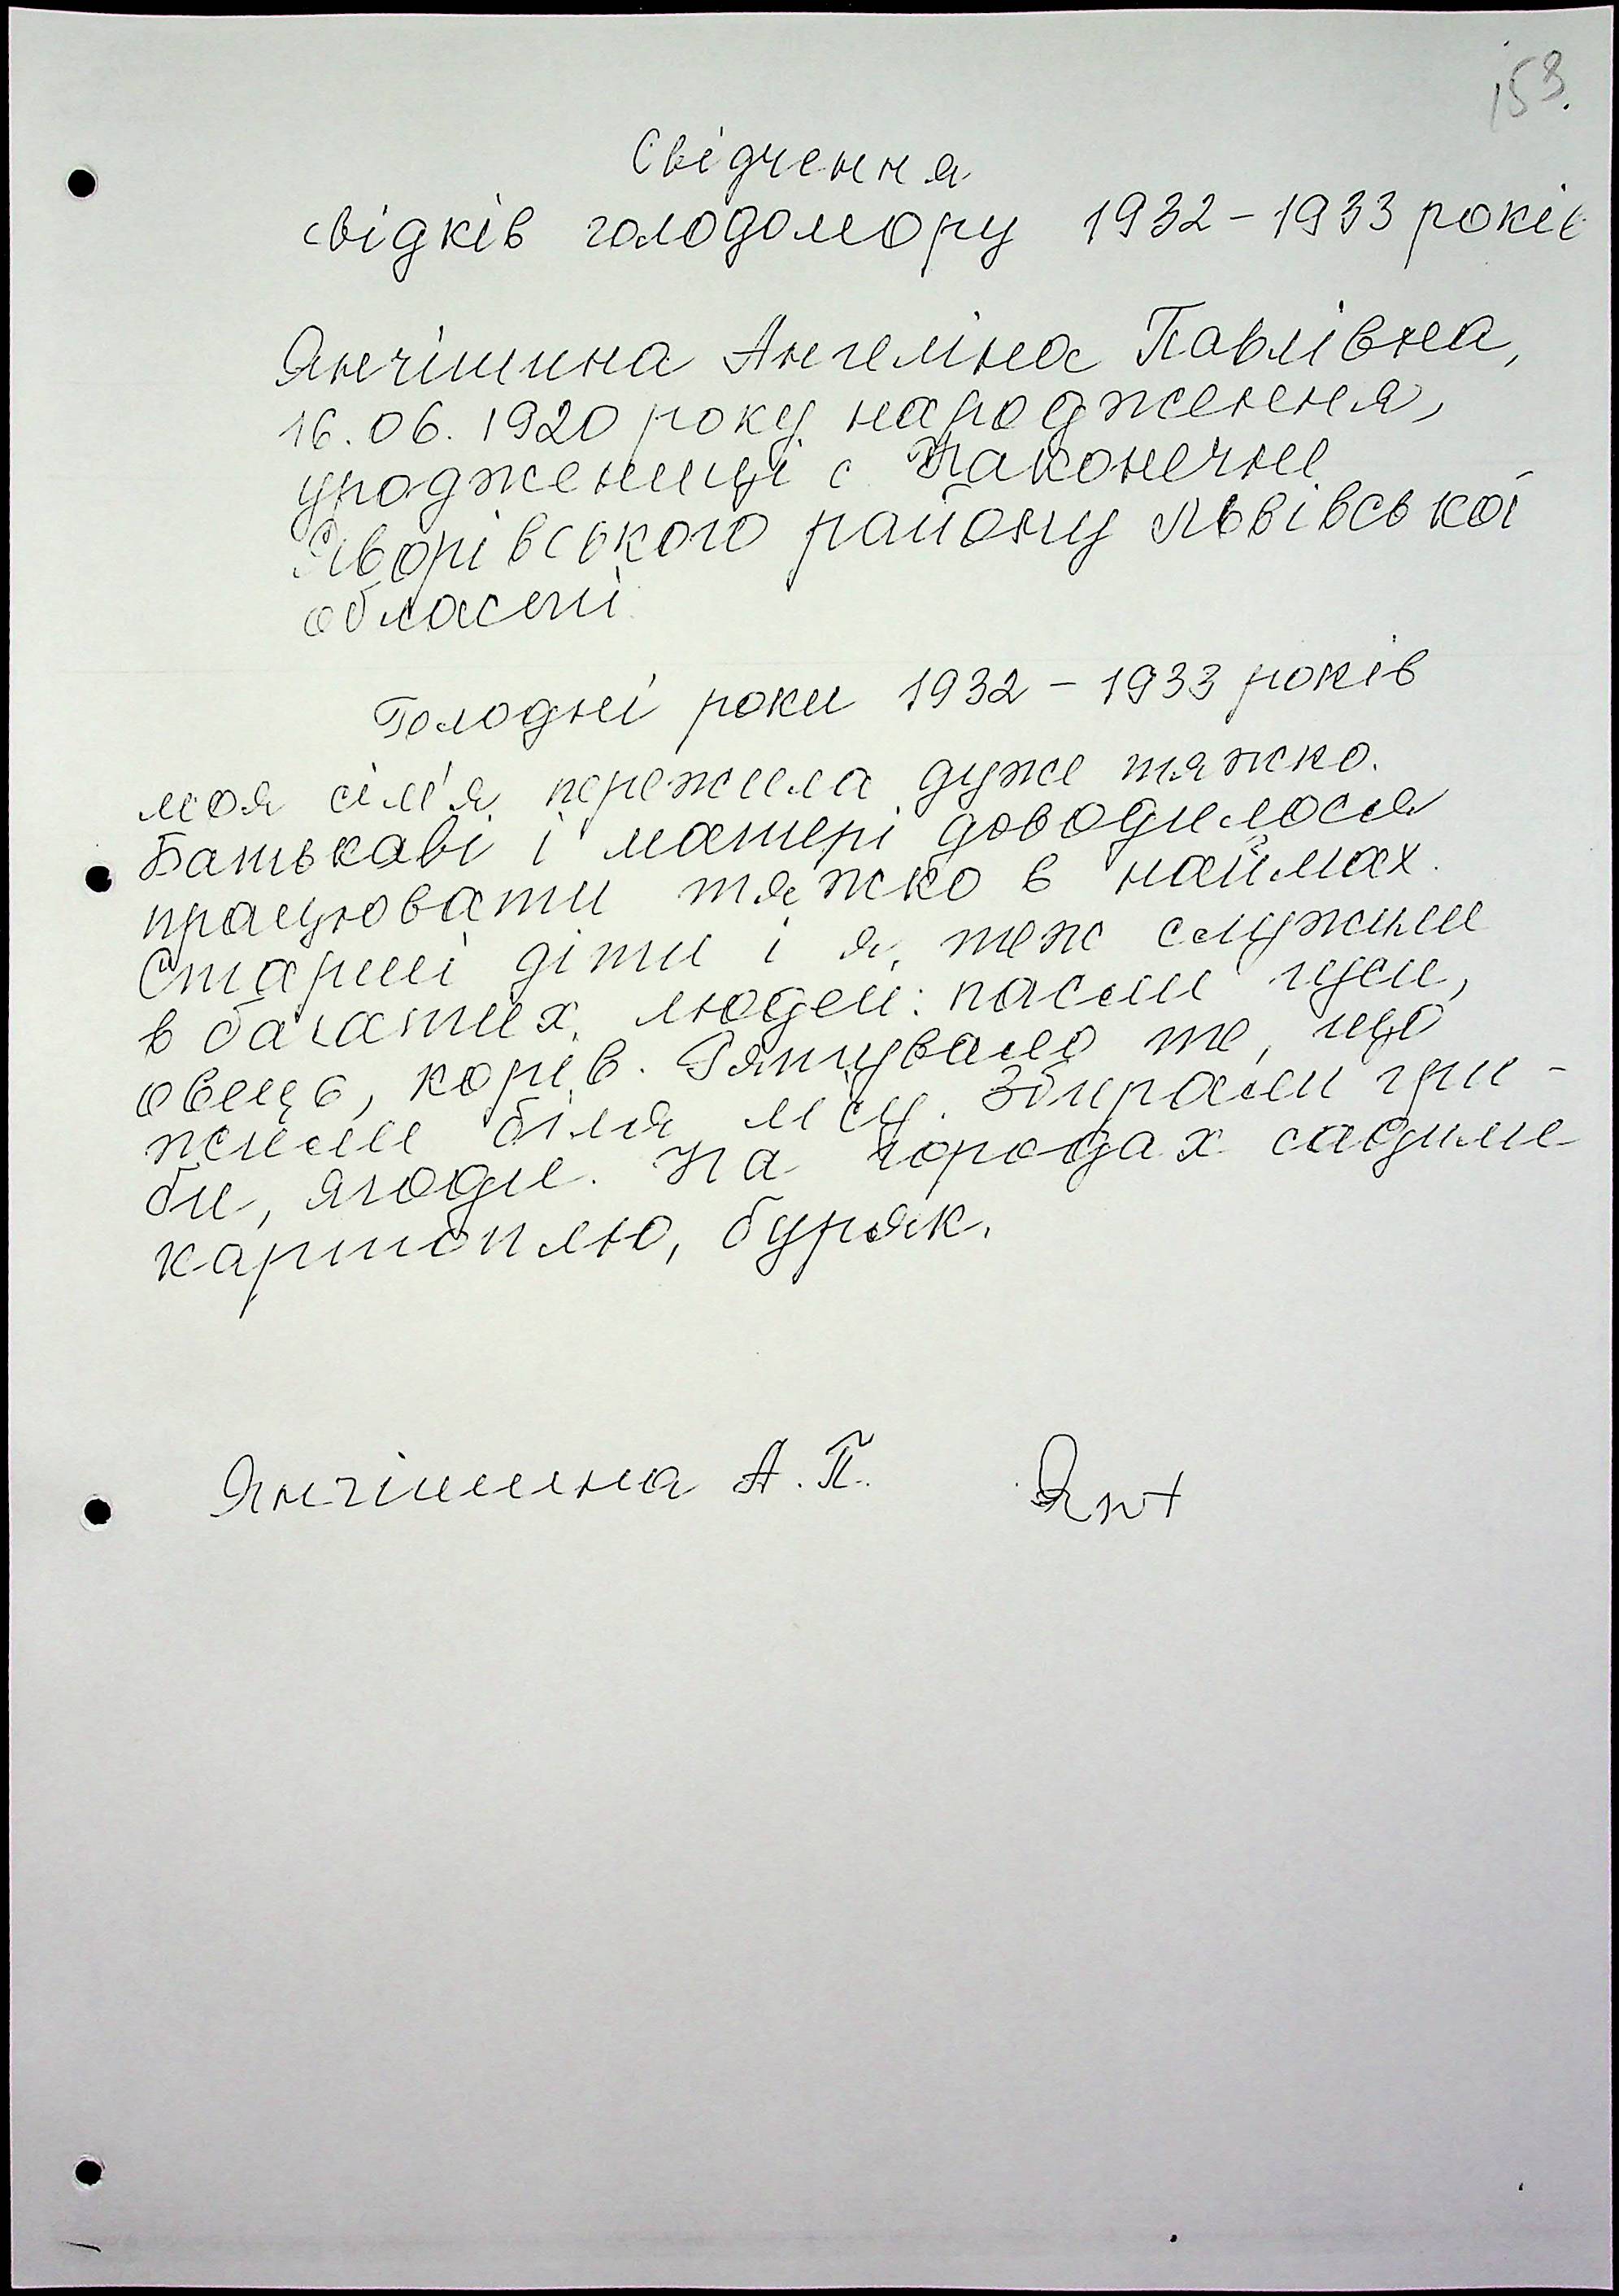 153.
Свідчення
свідків голодомору 1932-1933 років
Янчішина Ангеліна Павлівна,
16.06.1920 року народження,
уродженниці с Наконечне
Яворівського району Львівської
області.
Голодні роки 1932-1933 років
моя сім'я пережила дуже тяжко.
Батькаві і матері доводилося
працювати тяжко в наймах.
Старші діти і я, теж служили
в багатих людей: пасли гуси,
овець, корів. Рятувало те, що
жили біля лісу. Збирали гри-
би, ягоди. На городах садили
картоплю, буряк.
Янчішина А.П.